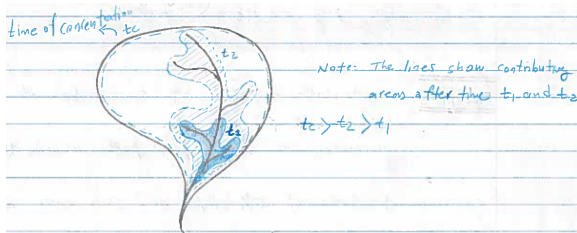 time of concentration
tc
t2
t1
Note: The lines show contributing
areas after time t1 and t2
tc > t2 > t1